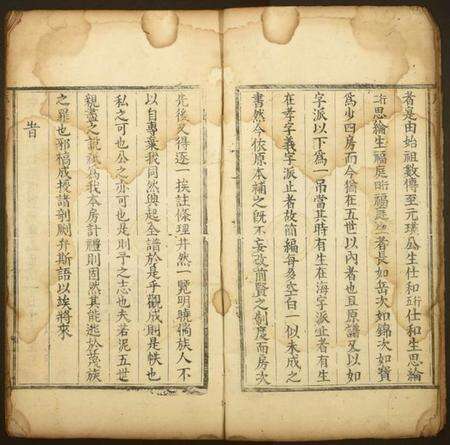 者是由始祖數傳至元璞瓜生仕和珩仕和生思綸
珩思綸生福庭珩福庭生者長如岳次如錦次如贊
為少四房而今倫在五世以內者也且原譜又以如
字派以下為一吊當其時有生在海字派止者有生
在孝字義字派止者故簡編每多空白一似未成之
書然今依原本補之既不妄改前賢之制度而房次
先後又得逐一挨註條理井然一覽明曉倘族人不
以自專棄我同然興起全譜於是乎觀成則是帙也
私之可也公之亦可也是則予之志也夫若泥五世
親盡之說祇為我本房計禮則固然其能逃於蔑族
之罪也邪稿成授諸剞劂弁斯語以埃將來
旹